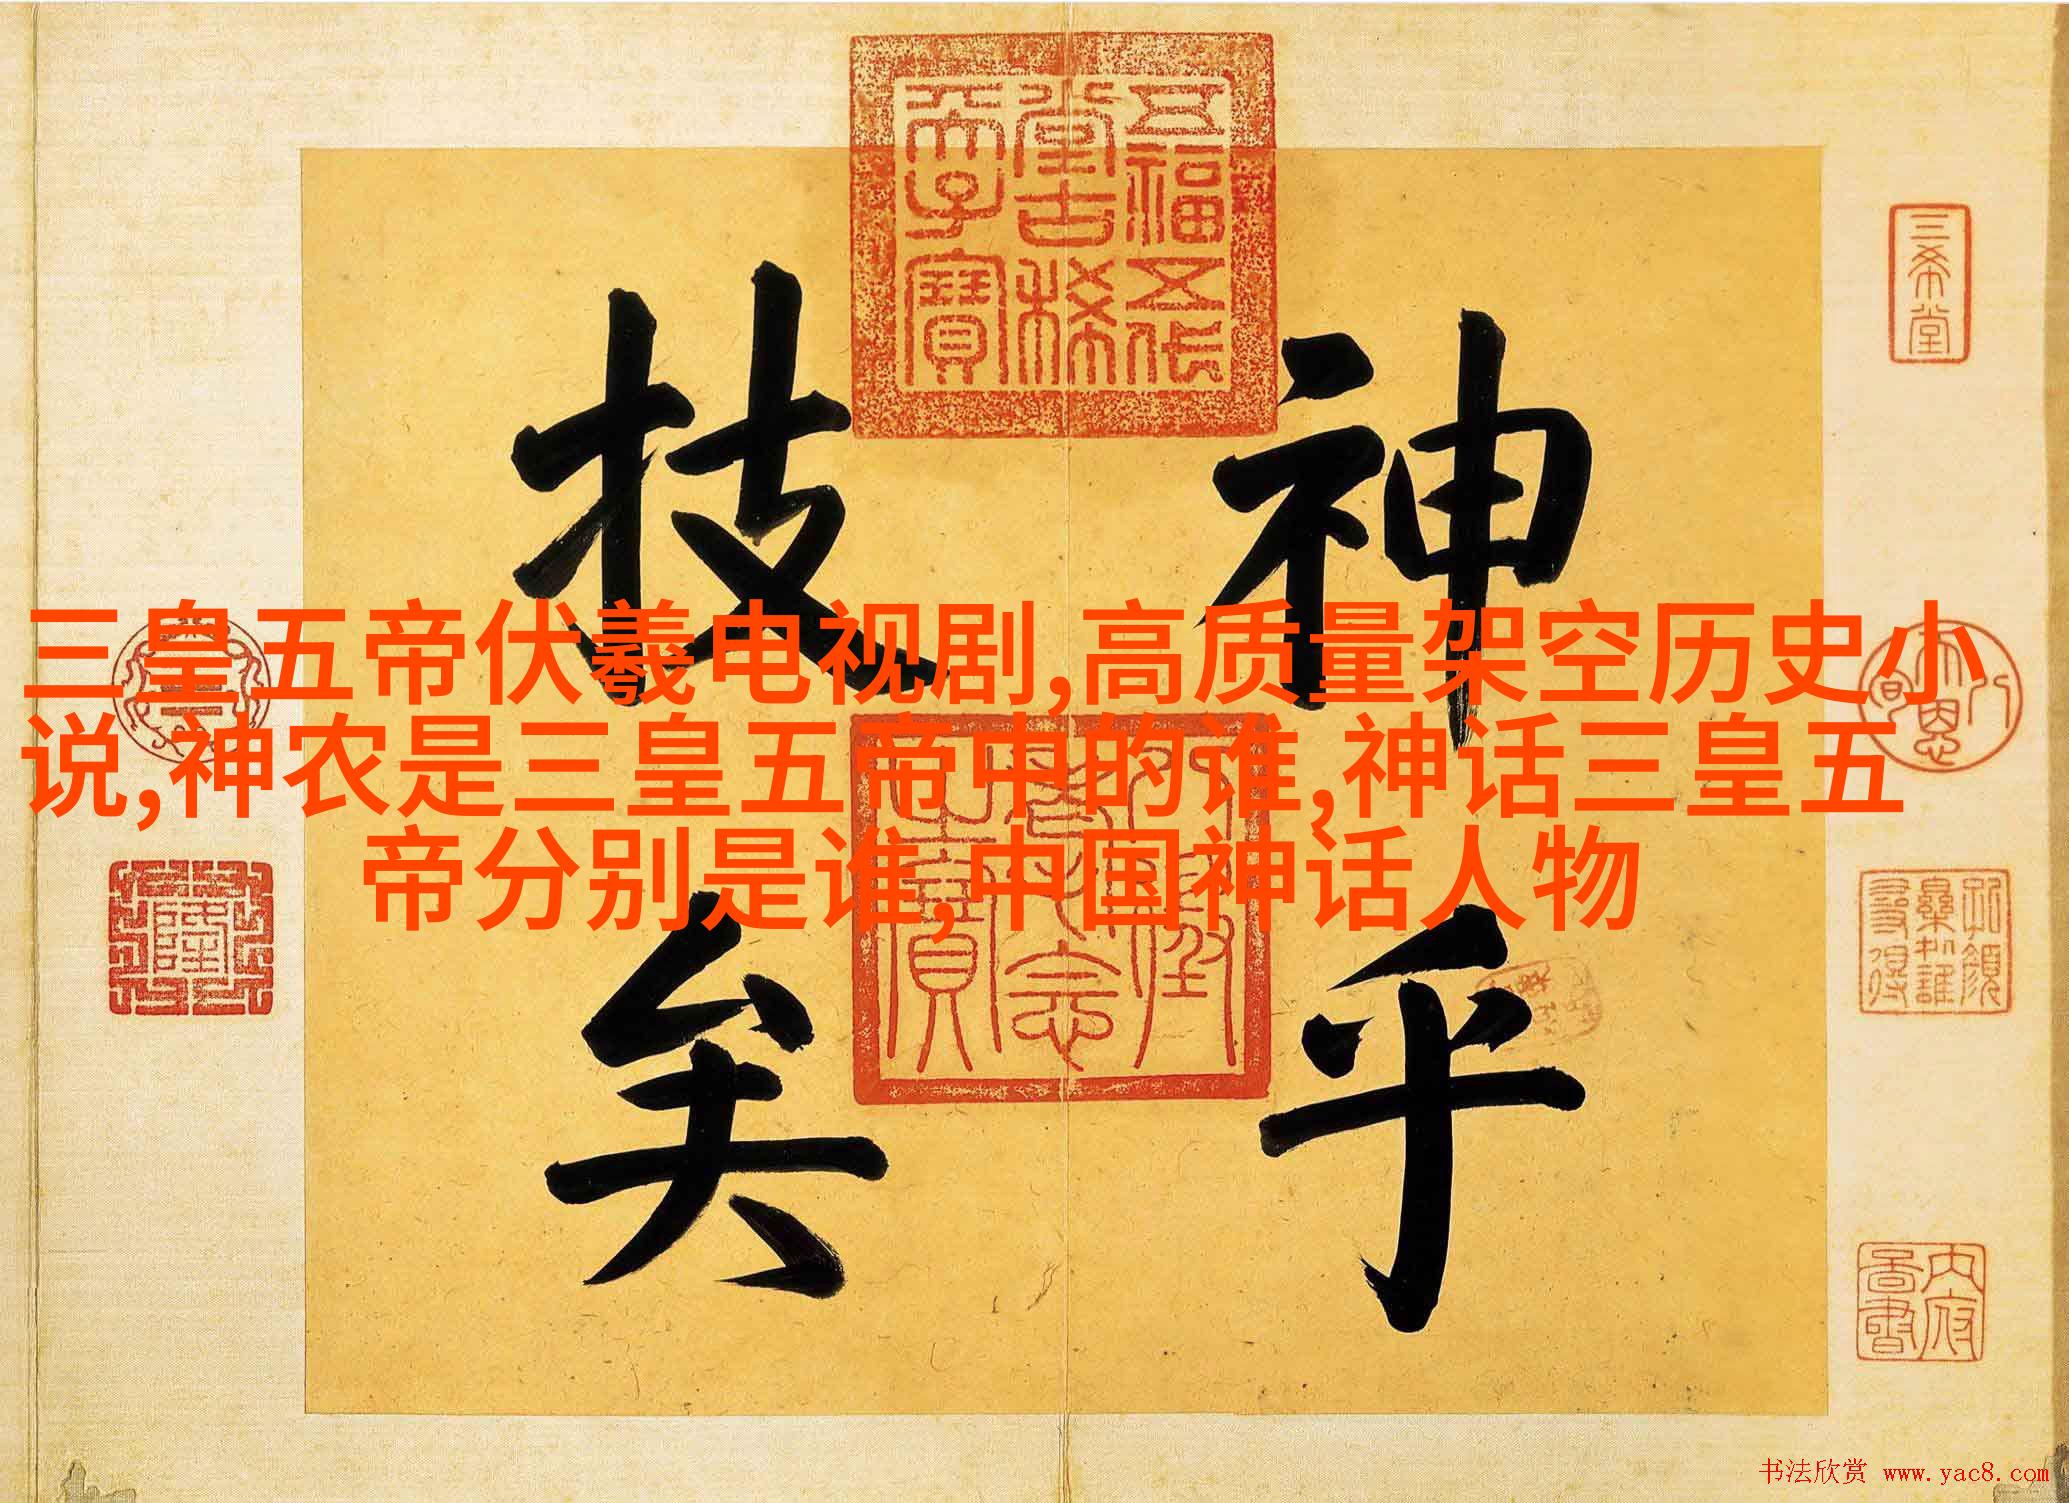 五福五代
堂古稀
天子寶
三希堂
神乎
技矣
三皇五帝伏羲电视剧,高质量架空历史小
说,神农是三皇五帝中的谁,神话三皇五
帝分别是谁,中国神话人物
八徵
耄念
之寶
书法欣赏 www.yac8.com